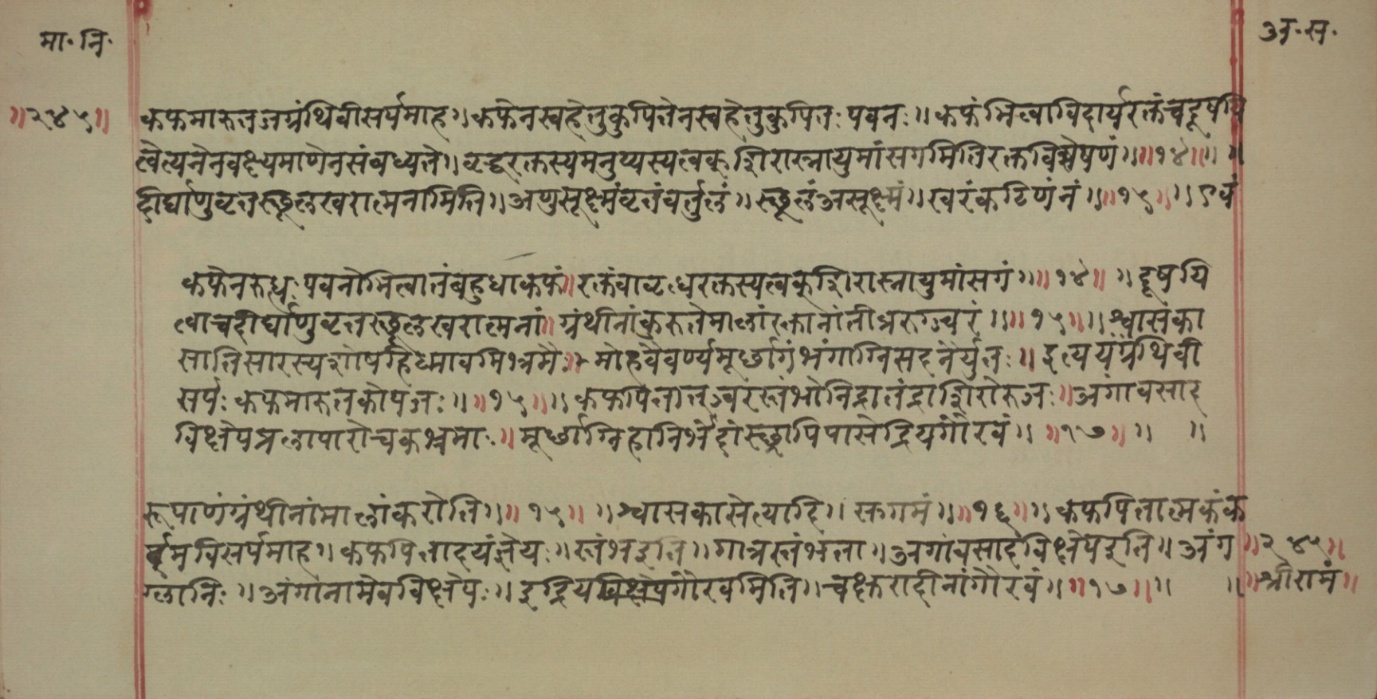 मा. नि.
अ. स.
॥२४५॥ कफमारुतजग्रंथिवीसर्पमाह॥ कफेनस्वहेतुकुपितेनस्वहेतुकुपितः पवनः॥ कफंभित्वाविदार्यरक्तंचदूषयि
त्वेत्यनेनवक्ष्यमाणेनसंबध्यते॥ वृद्धरक्तस्यमनुप्यस्यत्वक्शिरास्नायुमांसगमितिरक्तविशेषणं॥॥१४॥॥
दीर्घाणुवृत्तस्छूलखरात्मनामिति॥ अणुसूक्ष्मंवृत्तंवर्तुलं॥ स्छूलंअसूक्ष्मं॥ खरंकठिणंनं॥॥१५॥॥एवं
कफेनरुध्धः पवनोभित्वातंबहुधाकफं॥ रक्तंवावृध्धरक्तस्यत्वक्शिरास्नायुमांसगं॥॥१४॥ ॥दूषयि
त्वाचदीर्घाणुवृत्तस्छूलखरात्मनां॥ ग्रंथीनांकुरुतेमालांरक्तानांतीव्ररुग्ज्वरं॥॥१५॥॥श्वासंका
सातिसारस्यशोषहिध्मावमिभ्रमैः॥ मोहवैवर्ण्यमूर्छागंभंगाग्निसदनैर्युतः॥ इत्ययंग्रंथिवी
सर्पः कफमारुतकोपजः॥॥१५॥॥कफपित्ताज्ज्वरंस्तंभोनिद्रातंद्राशिरोरुजः॥अंगावसाद
विक्षेपप्रलापारोचकभ्रमाः॥ मूर्छाग्निहानिर्भेदोस्छ्नांपिपासेंद्रियगौरवं॥ ॥१७॥ ॥ ॥
रूपाणंग्रंथीनांमालांकरोति॥॥१५॥ ॥श्वासकासेत्यादि॥ स्कगमं॥॥१६॥॥कफपित्तात्मकंक
र्द्दमविसर्पमाह॥ कफपित्ताद्दयंज्ञेयः॥ स्तंभइति॥ गात्रस्तंभता॥ अंगावसादविक्षेपइति॥ अंग ॥२४५॥
ग्लानिः॥ अंगानामेवविक्षेपः॥ इंद्रियगौरवमिति॥ चक्षुरादीनांगौरवं॥॥१७॥॥ ॥ ॥श्रीरामं॥